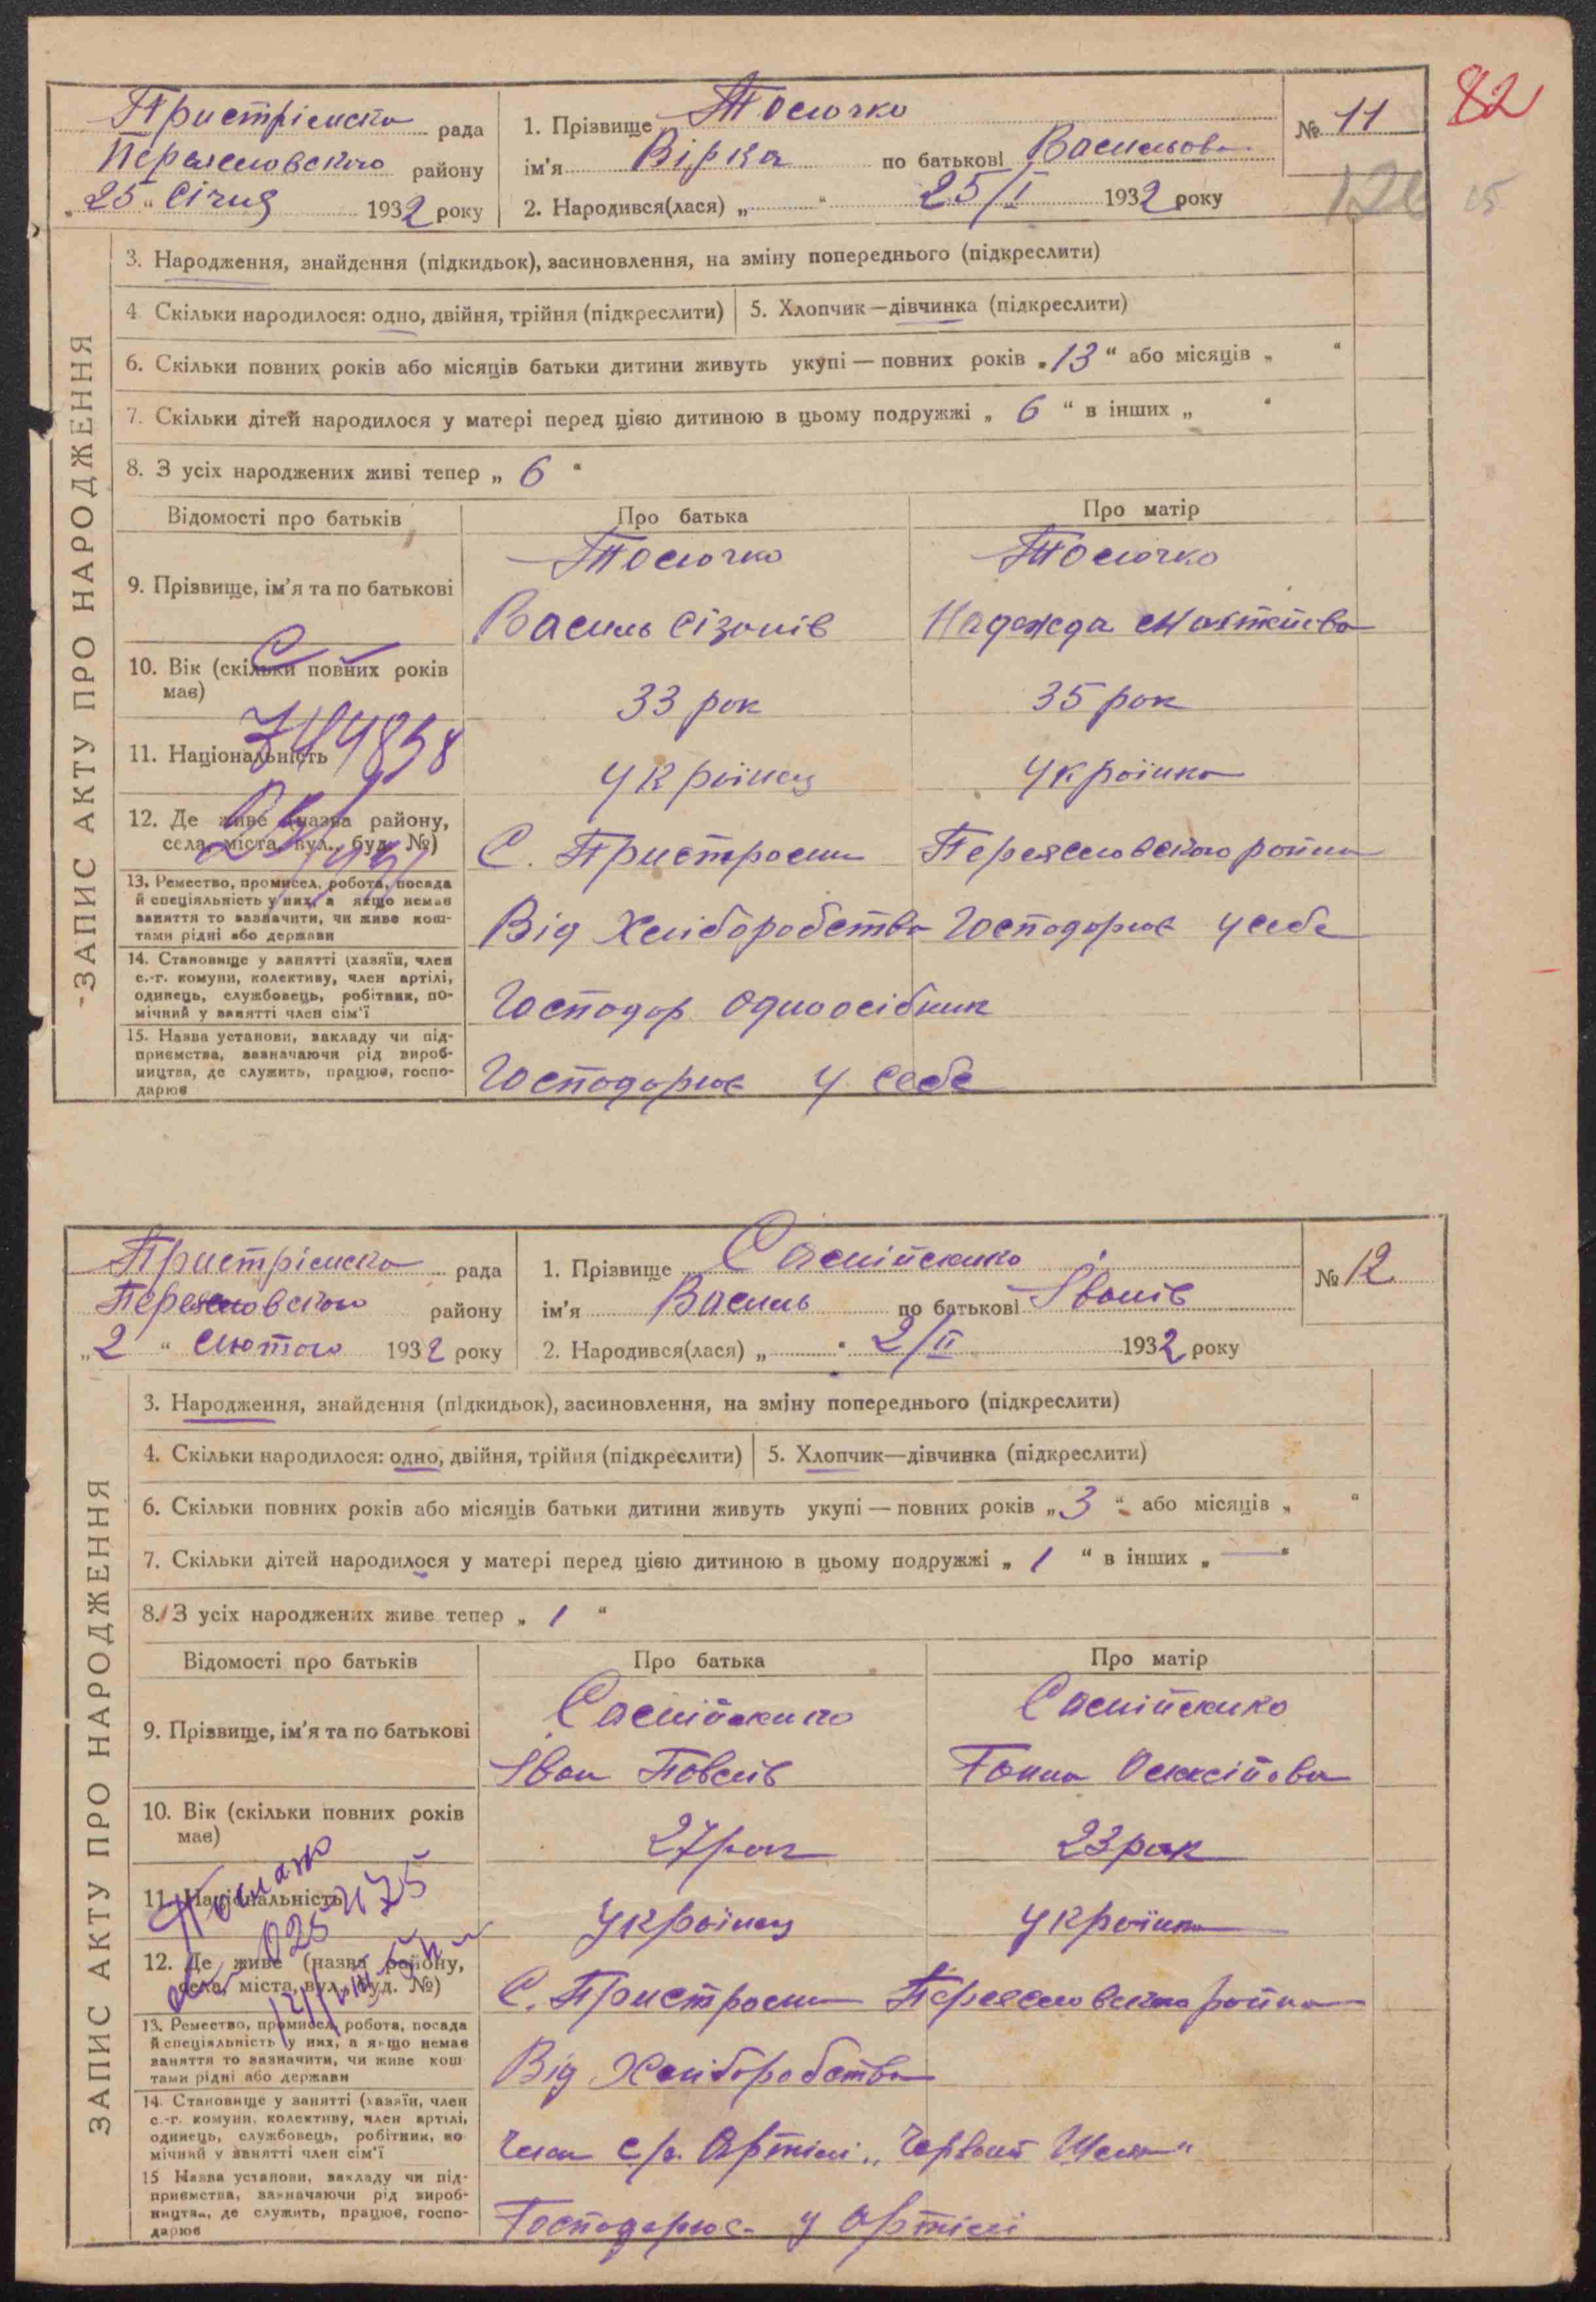 82
Пристрімська рада
Переяславського району
„25“ Січня 1932 року
1. Прізвище Толочко
ім'я Вірка по батькові Васильова
2. Народився(лася) „ “ 25/I 1932 року
№ 11
ЗАПИС АКТУ ПРО НАРОДЖЕННЯ
3. Народження, знайдення (підкидьок), засиновлення, на зміну попереднього (підкреслити)
4 Скільки народилося: одно, двійня, трійня (підкреслити) 5. Хлопчик—дівчинка (підкреслити)
6. Скільки повних років або місяців батьки дитини живуть укупі — повних років „13“ або місяців „ “
7. Скільки дітей народилося у матері перед цією дитиною в цьому подружжі „ 6 “ в інших „ “
8. З усіх народжених живі тепер „ 6 “
Відомості про батьків Про батька Про матір
9. Прізвище, ім'я та по батькові
Толочко Толочко
Василь Сізонів Надежда Матвіїва
10. Вік (скільки повних років має)
33 рок 35 рок
11. Національність
Українец Українка
12. Де живе (назва району, села, міста, вул., буд. №)
С. Пристроми Переяславського району
13. Ремество, промисел, робота, посада й спеціяльність у них, а якщо немає заняття то зазначити, чи живе коштами рідні або держави
Від Хліборобства Господорює у себе
14. Становище у занятті (хазяїн, член с.-г. комуни, колективу, член артілі, одинець, службовець, робітник, помічний у занятті член сім'ї
Господор Одноосібник
15. Назва установи, закладу чи підприємства, зазначаючи рід виробництва, де служить, працює, господарює
Господорює у себе
Пристрімська рада
Переяславського району
„2“ Лютого 1932 року
1. Прізвище Самійленко
ім'я Василь по батькові Іванів
2. Народився(лася) „ “ 2/II 1932 року
№ 12
ЗАПИС АКТУ ПРО НАРОДЖЕННЯ
3. Народження, знайдення (підкидьок), засиновлення, на зміну попереднього (підкреслити)
4. Скільки народилося: одно, двійня, трійня (підкреслити) 5. Хлопчик—дівчинка (підкреслити)
6. Скільки повних років або місяців батьки дитини живуть укупі — повних років „3“ або місяців „ “
7. Скільки дітей народилося у матері перед цією дитиною в цьому подружжі „ 1 “ в інших „ — “
8. З усіх народжених живе тепер „ 1 “
Відомості про батьків Про батька Про матір
9. Прізвище, ім'я та по батькові
Самійленко Самійленко
Іван Павлів Ганна
10. Вік (скільки повних років має)
27 рок 23 рок
11. Національність
Українец Українка
12. Де живе (назва району, села, міста, вул., буд. №)
С. Пристроми Переяславського району
13. Ремество, промисел, робота, посада й спеціяльність у них, а якщо немає заняття то зазначити, чи живе коштами рідні або держави
Від Хліборобства
14. Становище у занятті (хазяїн, член с.-г. комуни, колективу, член артілі, одинець, службовець, робітник, помічний у занятті член сім'ї
Член с/г. Артілі „Червоний Шлях“
15 Назва установи, закладу чи підприємства, зазначаючи рід виробництва, де служить, працює, господарює
Господорює у Артілі